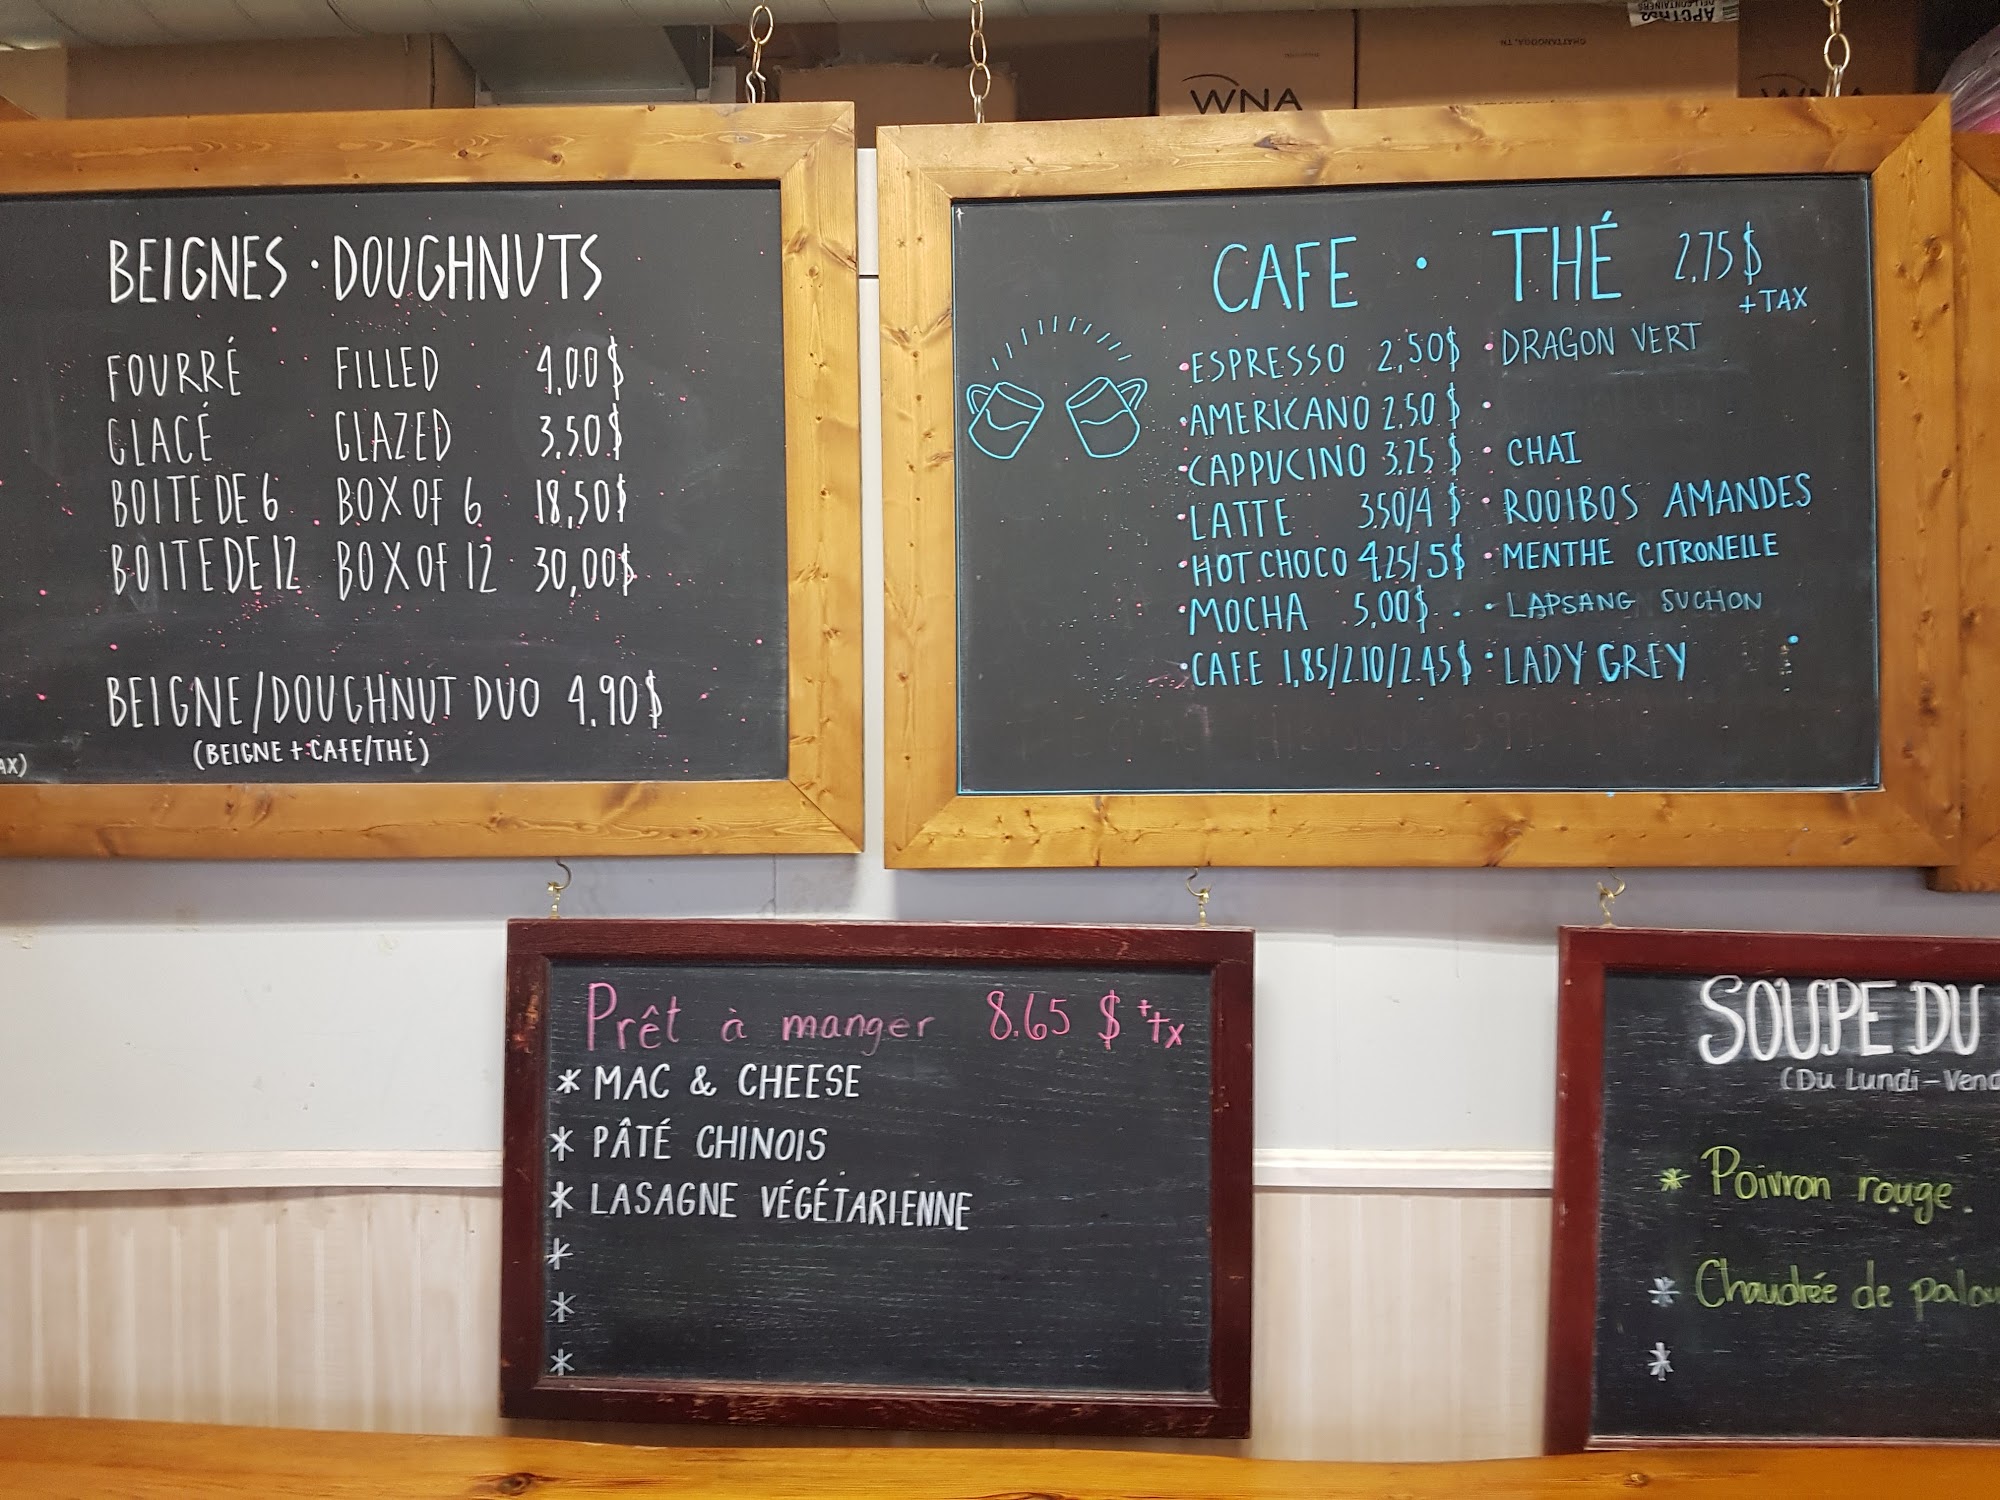 WNA
CHATTANOOGA, TN
BEIGNES · DOUGHNUTS
FOURRÉ FILLED 4,00$
GLACÉ GLAZED 3,50$
BOITE DE 6 BOX OF 6 18,50$
BOITE DE 12 BOX OF 12 30,00$
BEIGNE/DOUGHNUT DUO 4.90$
(BEIGNE + CAFE/THÉ)
AX)
CAFE · THÉ 2,75$
+TAX
·ESPRESSO 2,50$ ·DRAGON VERT
·AMERICANO 2.50$ ·
·CAPPUCINO 3,25$ ·CHAI
·LATTE 3.50/4$ ·ROOIBOS AMANDES
·HOT CHOCO 4.25/5$ ·MENTHE CITRONELLE
·MOCHA 5,00$ ·LAPSANG SUCHON
·CAFE 1,85/2.10/2.45$ ·LADY GREY
Prêt à manger 8.65 $ +tx
* MAC & CHEESE
* PÂTÉ CHINOIS
* LASAGNE VÉGÉTARIENNE
*
*
*
SOUPE DU
(Du Lundi - Vend
* Poivron rouge.
* Chaudrée de palou
*